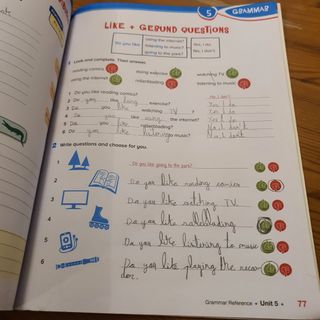 5 GRAMMAR
LIKE + GERUND QUESTIONS
Do you like using the internet? listening to music? going to the park? Yes, I do No, I don't
1 Look and complete. Then answer.
reading comics doing exercise watching TV
using the internet rollerblading listening to music
1 Do you like reading comics? No, I don't
2 Do you like doing exercise? Yes I do
3 Do you like watching TV Yes I do
4 Do you like using the internet? Yes I do
5 Do you like No I don't
6 Do you like listening to music? No, I don't
2 Write questions and choose for you.
1 Do you like going to the park?
2 Do you like reading comics
3 Do you like watching TV
4 Do you like
5 Do you like listening to music
6 Do you like playing the recor
der.
Grammar Reference • Unit 5 • 77